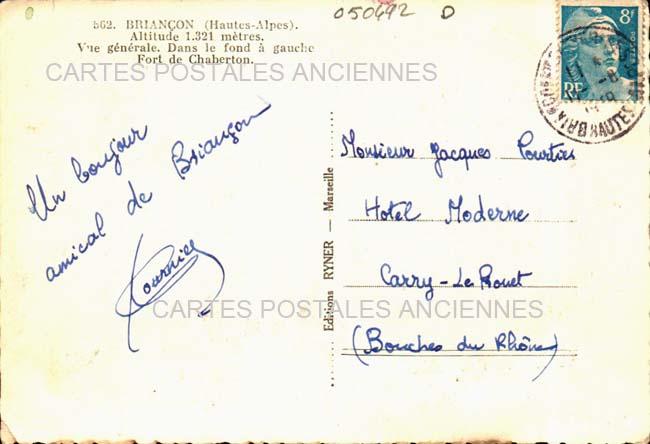 562. BRIANÇON (Hautes-Alpes).
Altitude 1.321 mètres.
Vue générale. Dans le fond à gauche
Fort de Chaberton.
050492 D
8f
POSTES
RF
HAUTES
CARTES POSTALES ANCIENNES
Un bonjour
amical de Briançon
Editions RYNER — Marseille
Monsieur Jacques
Hotel Moderne
Carry-Le Rouet
(Bouches du Rhône)
CARTES POSTALES ANCIENNES